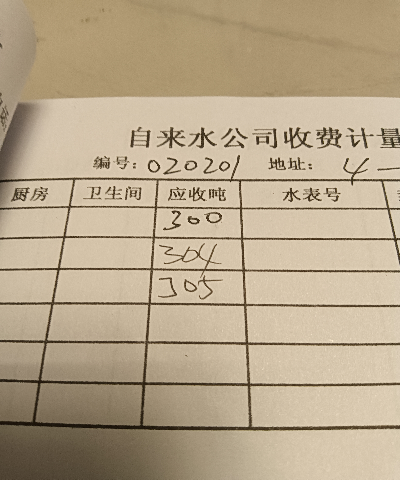 自来水公司收费计量
编号: 020201 地址: 4-
厨房 卫生间 应收吨 水表号
300
304
305